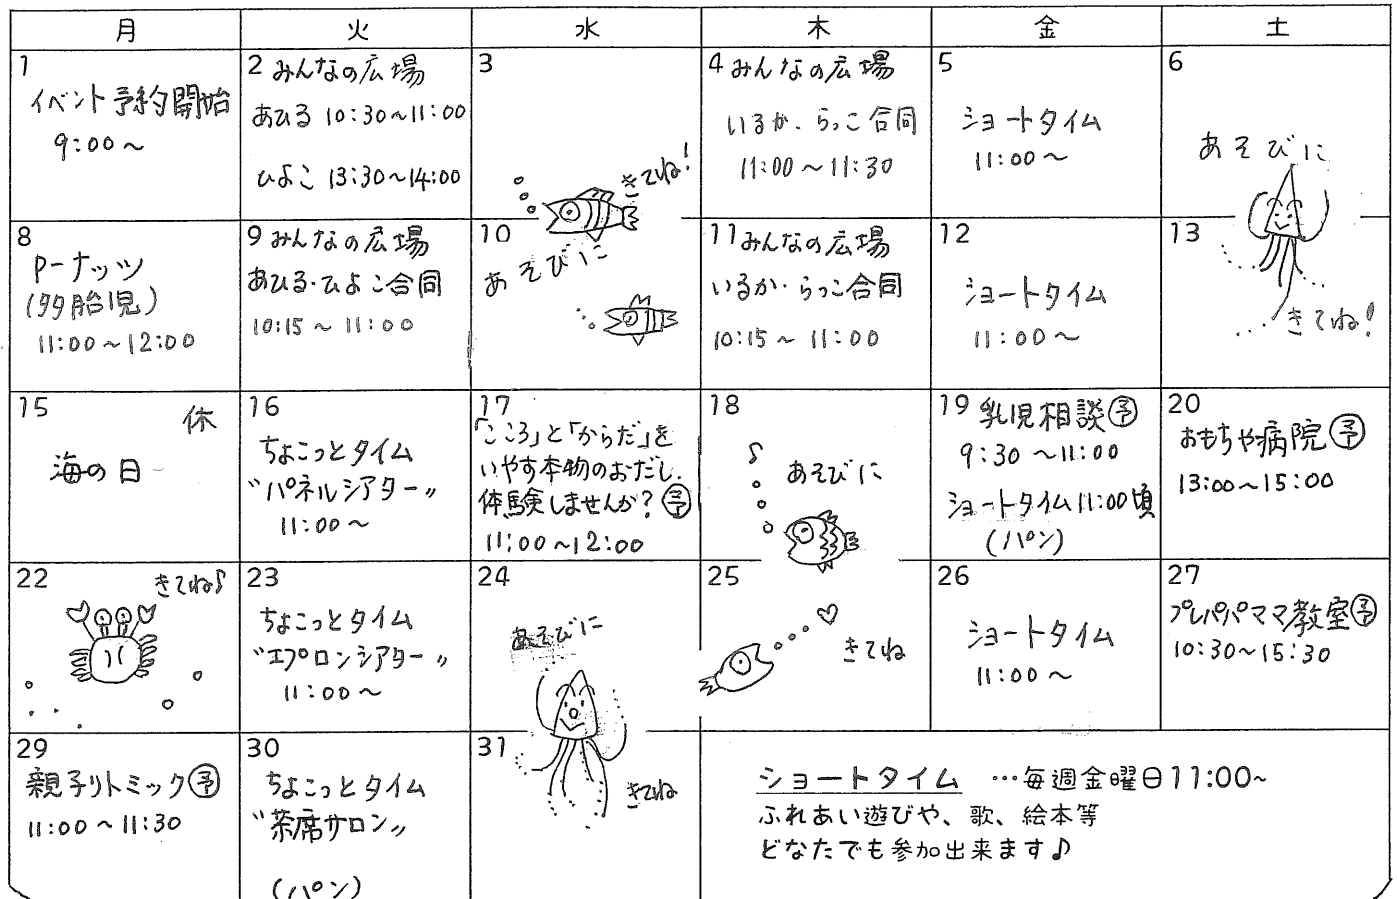 月 火 水 木 金 土
1
イベント予約開始
9:00～
2 みんなの広場
あひる 10:30～11:00
ひよこ 13:30～14:00
3
きてね!
4 みんなの広場
いるか・らっこ合同
11:00～11:30
5
ショートタイム
11:00～
6
あそびに
8
Pーナッツ
(多胎児)
11:00～12:00
9 みんなの広場
あひる・ひよこ合同
10:15～11:00
10
あそびに
11 みんなの広場
いるか・らっこ合同
10:15～11:00
12
ショートタイム
11:00～
13
きてね!
15
休
海の日
16
ちょこっとタイム
〝パネルシアター〟
11:00～
17
「こころ」と「からだ」を
いやす本物のおだし
体験しませんか?㋵
11:00～12:00
18
♪
あそびに
19 乳児相談予
9:30～11:00
ショートタイム11:00頃
(パン)
20
おもちゃ病院予
13:00～15:00
22
きてね♪
23
ちょこっとタイム
〝エプロンシアター〟
11:00～
24
あそびに
25
きてね
26
ショートタイム
11:00～
27
プレパパママ教室予
10:30～15:30
29
親子リトミック予
11:00～11:30
30
ちょこっとタイム
〝茶席サロン〟
(パン)
31
きてね
ショートタイム …毎週金曜日11:00~
ふれあい遊びや、歌、絵本等
どなたでも参加出来ます♪